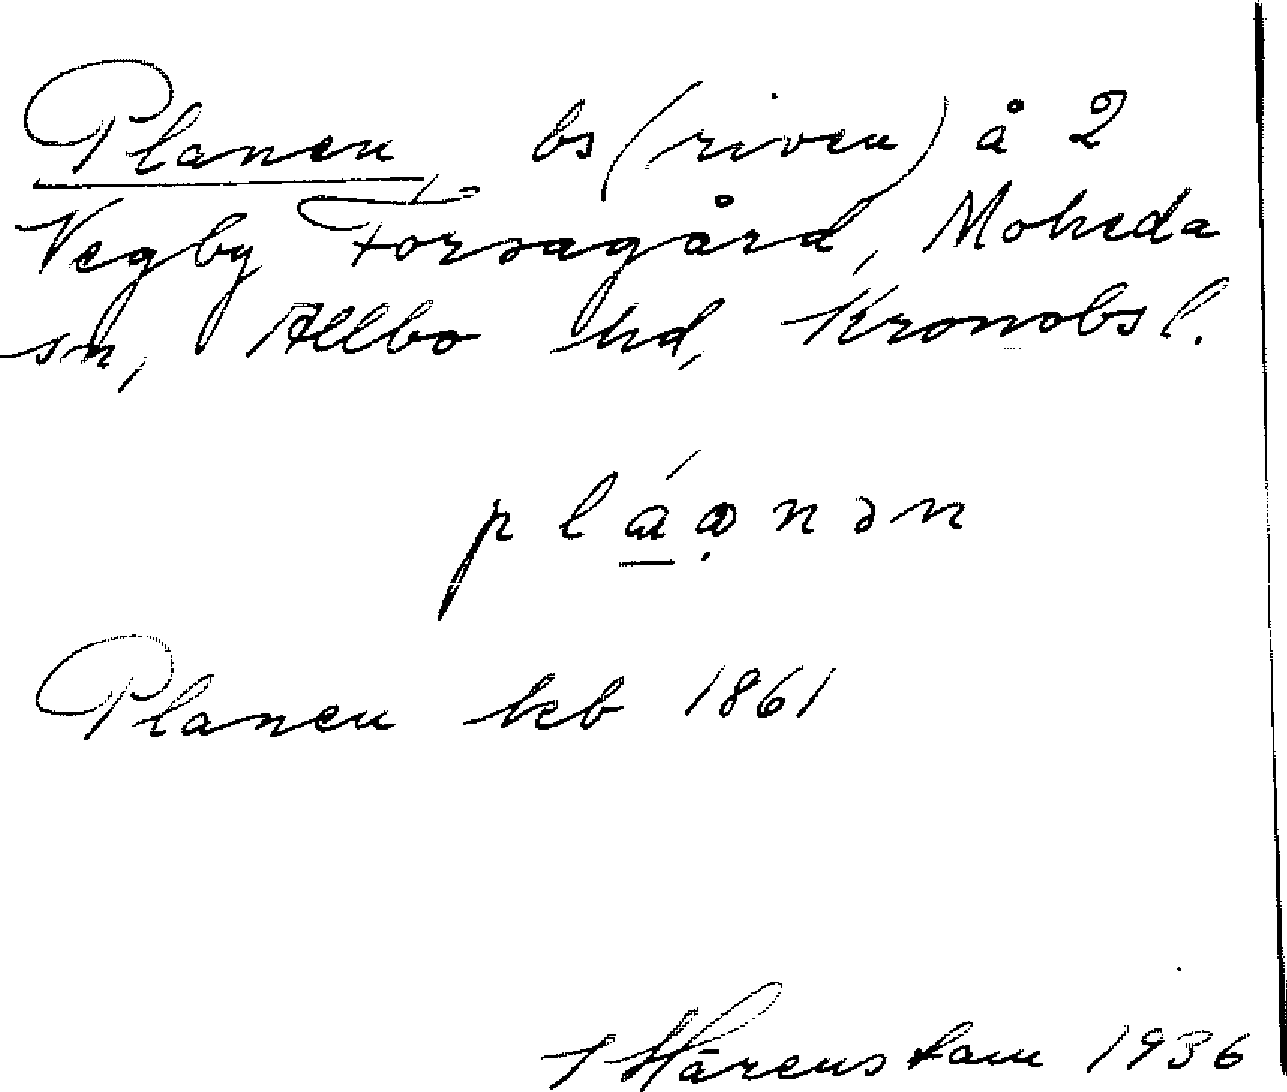 Planen bs (riven) å 2
Vegby Forsagård, Moheda
sn, Allbo hd, Kronobs l.
pláɷnən
Planen kb 1861
Mårenstam 1936